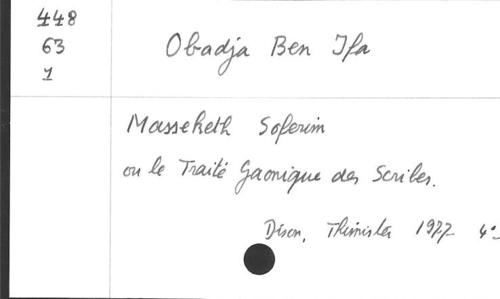 448
63
1
Obadja Ben Ifa
Masseketh Soferim
ou le Traité Gaonique des Scribes.
Dison, Thimister 1977 4°